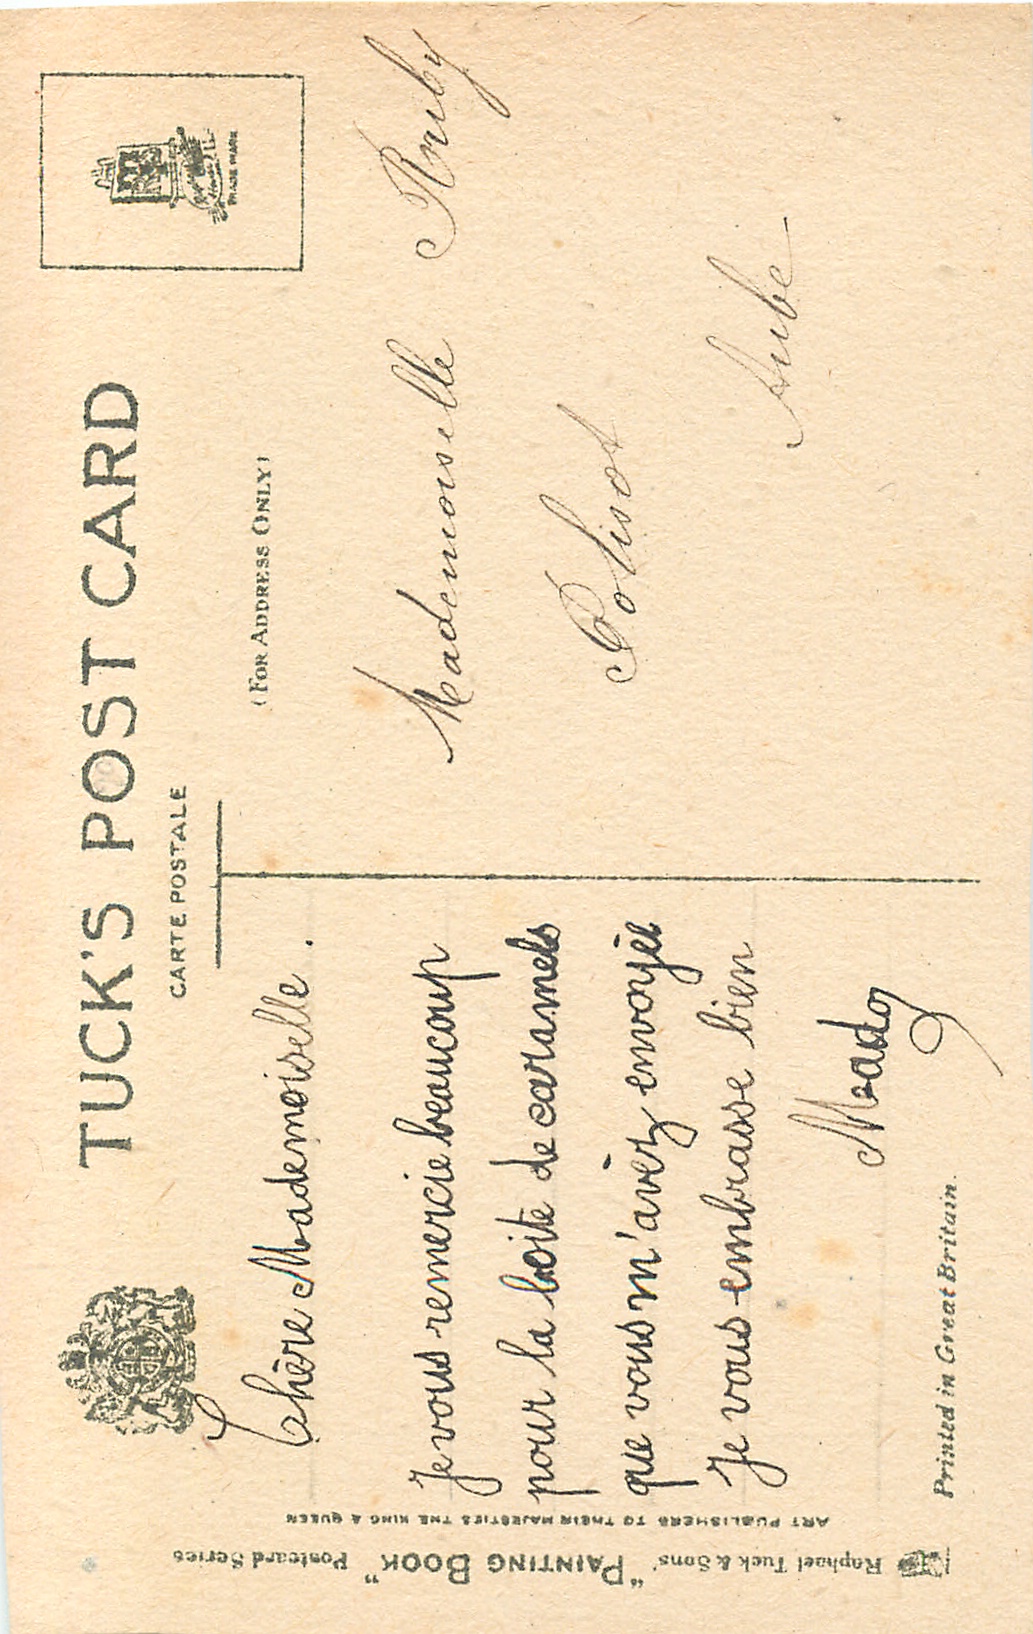 TUCK'S POST CARD
CARTE POSTALE
(FOR ADDRESS ONLY)
TRADE MARK
Chère Mademoiselle.
Je vous remercie beaucoup
pour la boite de caramels
que vous m'avez envoyée
Je vous embrasse bien
Mado
Mademoiselle Ruby
Polisot
Aube
Printed in Great Britain.
Raphael Tuck & Sons' "PAINTING BOOK" Postcard Series
ART PUBLISHERS TO THEIR MAJESTIES THE KING & QUEEN